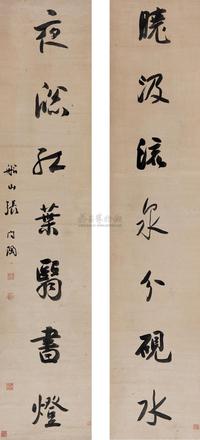 曉汲流泉分硯水
夜红葉翳書燈
船山張問陶